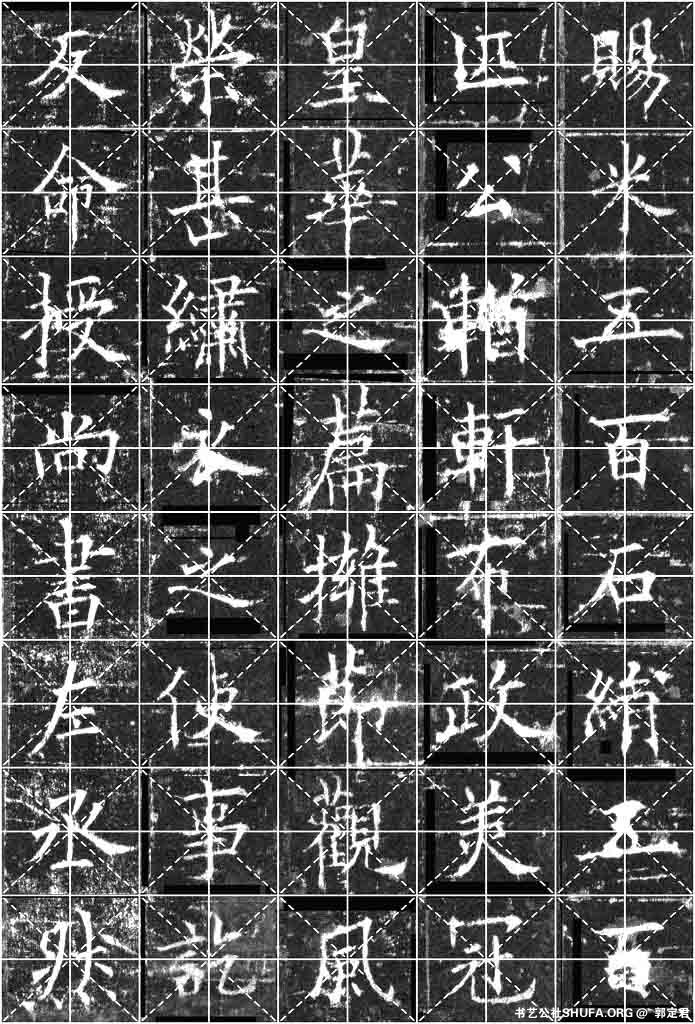 賜米五百石絹五百
匹公輶軒布政美冠
皇華之篇擁節觀風
榮甚繡衣之使事訖
反命授尚書左丞然
书艺公社SHUFA.ORG @" 郭定君